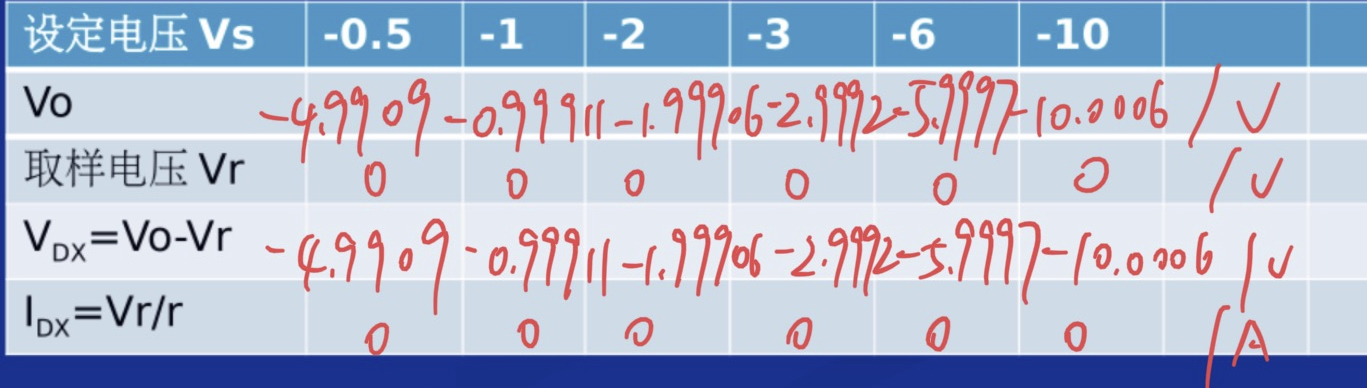 设定电压 Vs -0.5 -1 -2 -3 -6 -10
Vo -4.9909 -0.99911 -1.99906 -2.9992 -5.9997 -10.0006 /V
取样电压 Vr 0 0 0 0 0 0 /V
VDX=Vo-Vr -4.9909 -0.99911 -1.99906 -2.9992 -5.9997 -10.0006 /V
IDX=Vr/r 0 0 0 0 0 0 /A